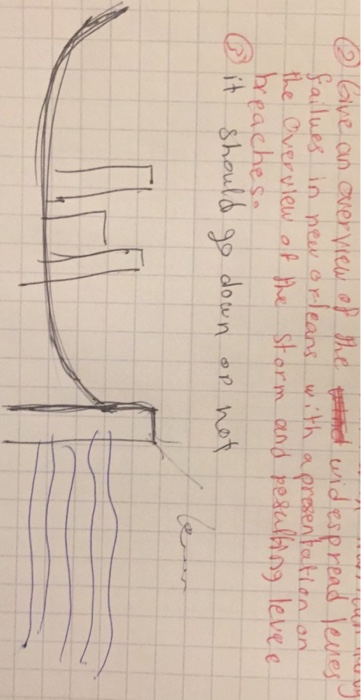 ② Give an overview of the widespread levees
failues in new orleans with a presentation on
the overview of the storm and resulting levee
breaches.
③ it should go down or not